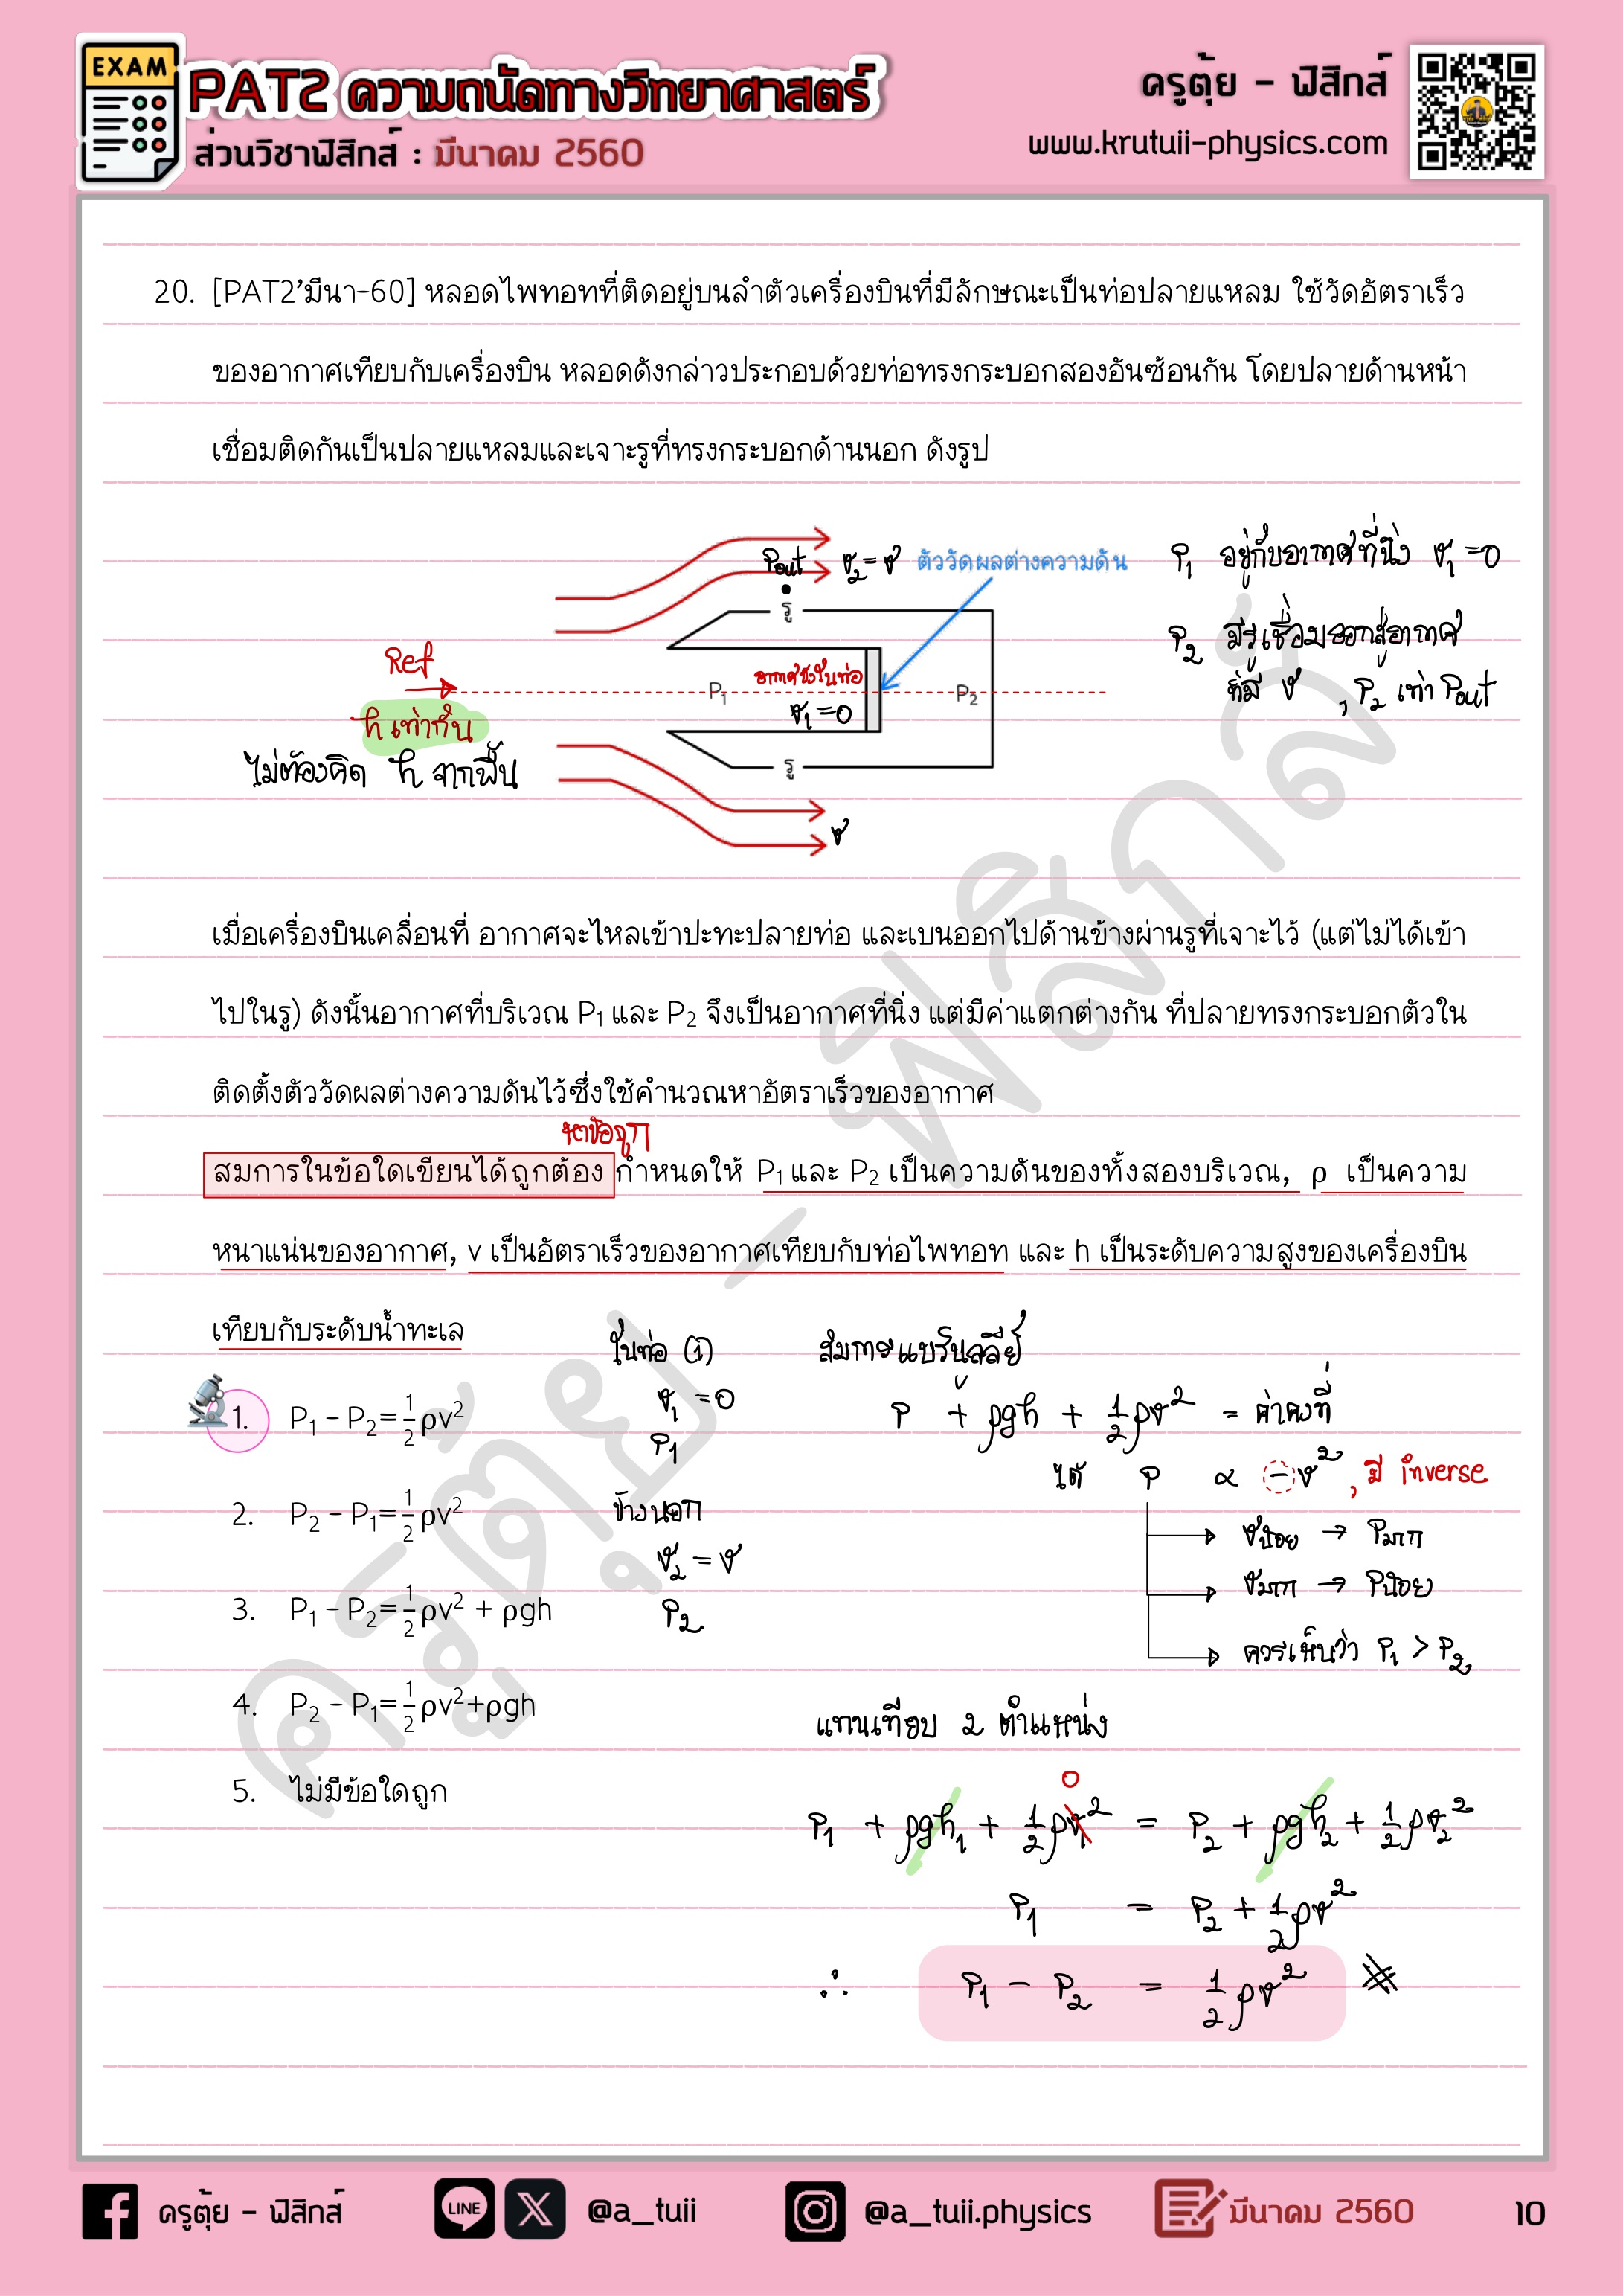 EXAM
PAT2 ความถนัดทางวิทยาศาสตร์
ส่วนวิชาฟิสิกส์ : มีนาคม 2560
ครูตุ้ย - ฟิสิกส์
www.krutuii-physics.com
20. [PAT2'มีนา-60] หลอดไพทอทที่ติดอยู่บนลำตัวเครื่องบินที่มีลักษณะเป็นท่อปลายแหลม ใช้วัดอัตราเร็ว
ของอากาศเทียบกับเครื่องบิน หลอดดังกล่าวประกอบด้วยท่อทรงกระบอกสองอันซ้อนกัน โดยปลายด้านหน้า
เชื่อมติดกันเป็นปลายแหลมและเจาะรูที่ทรงกระบอกด้านนอก ดังรูป
Pout v₂ = v ตัววัดผลต่างความดัน
รู
P₁ อยู่กับอากาศที่นิ่ง v₁ = 0
P₂ มีรูเชื่อมออกสู่อากาศ
ที่มี v , P₂ เท่า Pout
Ref
h เท่ากัน
ไม่ต้องคิด h จากพื้น
P₁ อากาศขังในท่อ P₂
v₁ = 0
รู
v
เมื่อเครื่องบินเคลื่อนที่ อากาศจะไหลเข้าปะทะปลายท่อ และเบนออกไปด้านข้างผ่านรูที่เจาะไว้ (แต่ไม่ได้เข้า
ไปในรู) ดังนั้นอากาศที่บริเวณ P₁ และ P₂ จึงเป็นอากาศที่นิ่ง แต่มีค่าแตกต่างกัน ที่ปลายทรงกระบอกตัวใน
ติดตั้งตัววัดผลต่างความดันไว้ซึ่งใช้คำนวณหาอัตราเร็วของอากาศ
หาข้อถูก
สมการในข้อใดเขียนได้ถูกต้อง กำหนดให้ P₁ และ P₂ เป็นความดันของทั้งสองบริเวณ, ρ เป็นความ
หนาแน่นของอากาศ, v เป็นอัตราเร็วของอากาศเทียบกับท่อไพทอท และ h เป็นระดับความสูงของเครื่องบิน
เทียบกับระดับน้ำทะเล
1. P₁ - P₂= 1/2 ρv²
2. P₂ - P₁= 1/2 ρv²
3. P₁ - P₂= 1/2 ρv² + ρgh
4. P₂ - P₁= 1/2 ρv²+ρgh
5. ไม่มีข้อใดถูก
ในท่อ (1)
v₁ = 0
P₁
ข้างนอก
v₂ = v
P₂
สมการแบร์นูลลีย์
P + ρgh + 1/2 ρv² = ค่าคงที่
ได้ P ∝ -v² , มี inverse
vน้อย → Pมาก
vมาก → Pน้อย
ควรเห็นว่า P₁ > P₂
แทนเทียบ 2 ตำแหน่ง
0
P₁ + ρgh₁ + 1/2 ρv₁² = P₂ + ρgh₂ + 1/2 ρv₂²
P₁ = P₂ + 1/2 ρv²
∴ P₁ - P₂ = 1/2 ρv² #
ครูตุ้ย - ฟิสิกส์
ครูตุ้ย - ฟิสิกส์ LINE X @a_tuii @a_tuii.physics มีนาคม 2560 10